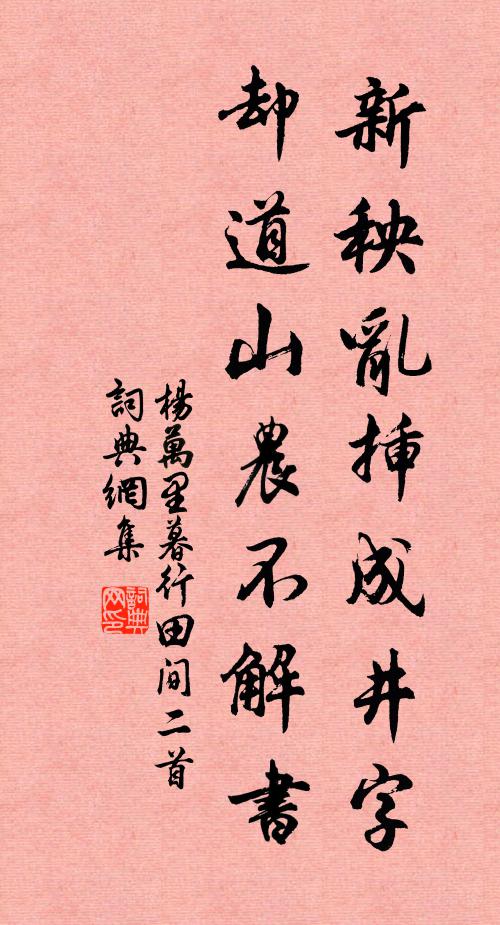 新秧亂揷成井字
却道山農不解書
楊萬里暮行田間二首
詞典網集
詞典网印